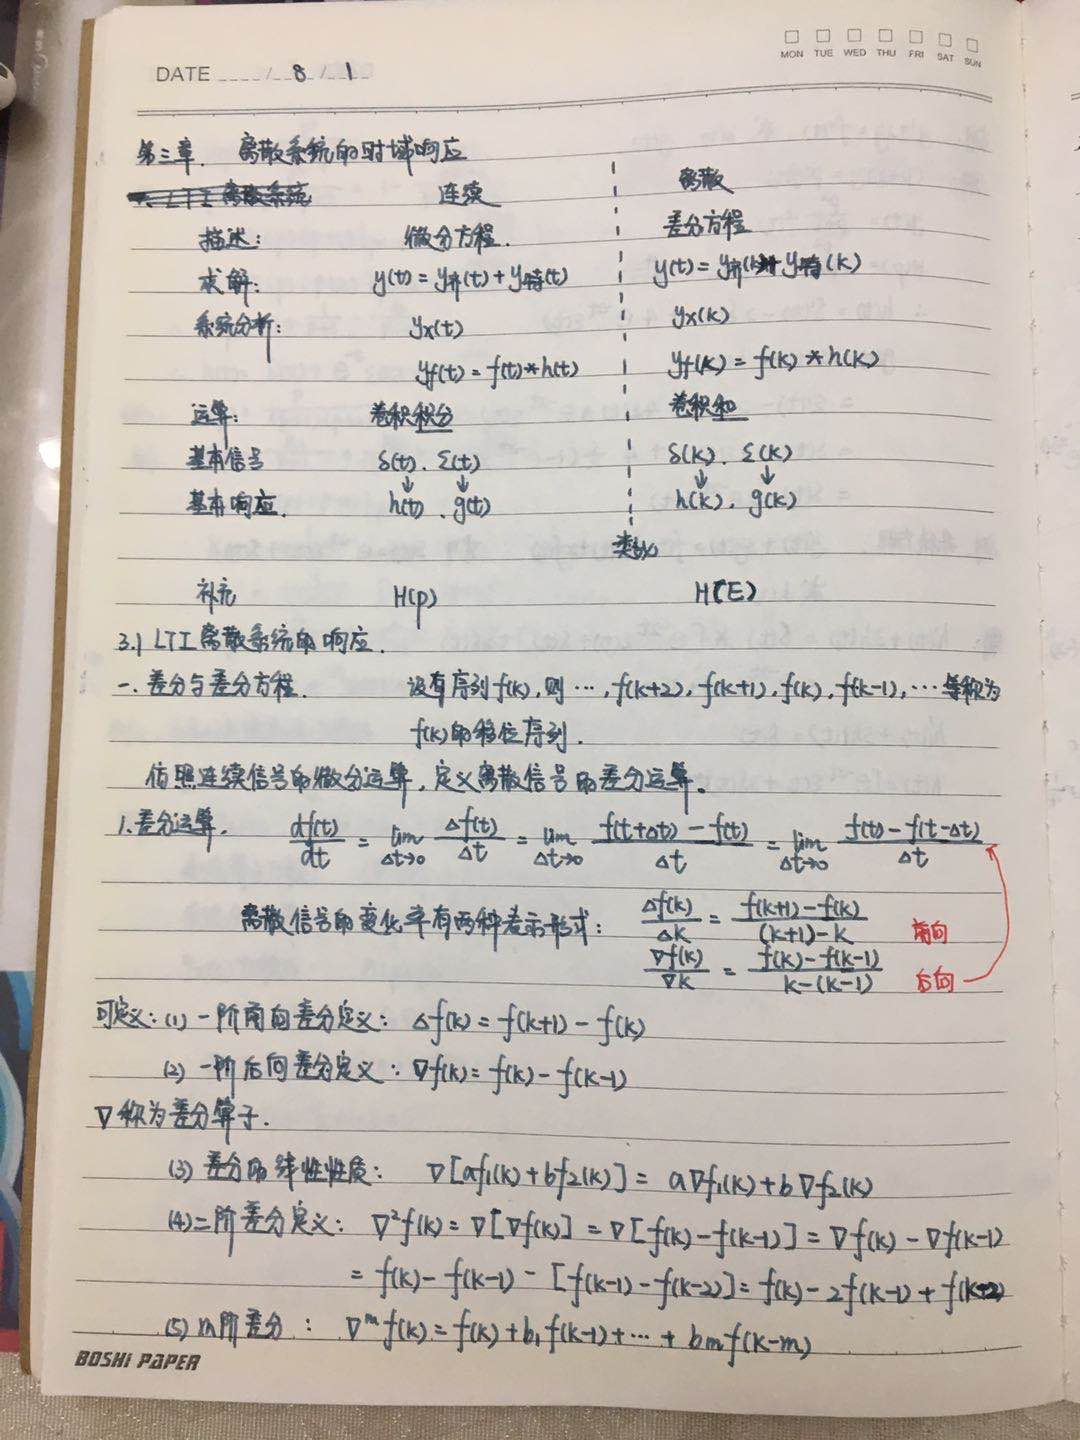 MON TUE WED THU FRI SAT SUN
DATE ____/__8__/__1__
第三章. 离散系统的时域响应
一. LTI 离散系统 连续 离散
描述: 微分方程. 差分方程
求解: y(t) = y齐(t) + y特(t) y(t) = y齐(k) + y特(k)
系统分析: yx(t) yx(k)
yf(t) = f(t)*h(t) yf(k) = f(k)*h(k)
运算: 卷积积分 卷积和
基本信号 δ(t). ε(t) δ(k). ε(k)
↓ ↓ ↓ ↓
基本响应. h(t). g(t) h(k). g(k)
类似
补充 H(p) H(E)
3.1 LTI 离散系统的响应.
一. 差分与差分方程. 设有序列f(k), 则 …, f(k+2), f(k+1), f(k), f(k-1), … 等称为
f(k)的移位序列.
仿照连续信号的微分运算, 定义离散信号的差分运算。
1. 差分运算. df(t)/dt = lim Δt→0 Δf(t)/Δt = lim Δt→0 (f(t+Δt) - f(t))/Δt = lim Δt→0 (f(t) - f(t-Δt))/Δt
离散信号的变化率有两种表示形式: Δf(k)/Δk = (f(k+1) - f(k))/((k+1) - k) 前向
∇f(k)/∇k = (f(k) - f(k-1))/(k-(k-1)) 后向
可定义: (1) 一阶前向差分定义: Δf(k) = f(k+1) - f(k)
(2) 一阶后向差分定义: ∇f(k) = f(k) - f(k-1)
∇称为差分算子.
(3) 差分的线性性质: ∇[af₁(k) + bf₂(k)] = a∇f₁(k) + b∇f₂(k)
(4) 二阶差分定义: ∇²f(k) = ∇[∇f(k)] = ∇[f(k) - f(k-1)] = ∇f(k) - ∇f(k-1)
= f(k) - f(k-1) - [f(k-1) - f(k-2)] = f(k) - 2f(k-1) + f(k-2)
(5) m阶差分: ∇ᵐf(k) = f(k) + b₁f(k-1) + … + bₘf(k-m)
BOSHI PAPER